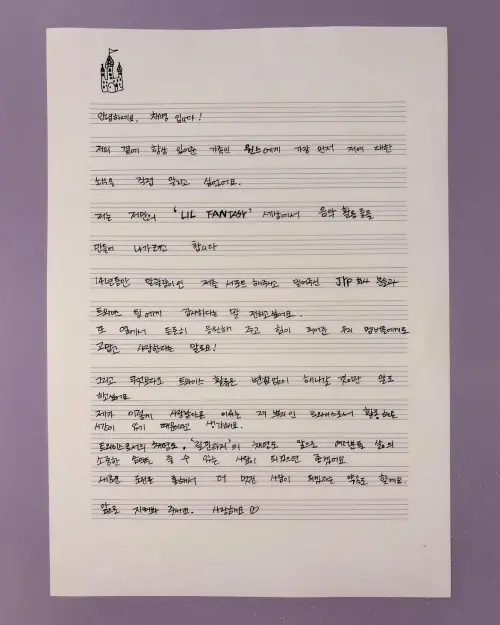 안녕하세요, 채영 입니다!
저의 곁에 항상 있어준 가족인 원스에게 가장 먼저 저에 대한
소식을 직접 알리고 싶었어요.
저는 저만의 'LIL FANTASY' 세상에서 음악 활동들을
만들어 나가려고 합니다
14년동안 말괄량이인 저를 서포트 해주고 믿어주신 JYP 회사 분들과
트와이스 팀에게 감사하다는 말 전하고싶어요.
또 옆에서 든든히 응원해 주고 힘이 되어준 우리 멤버들에게도
고맙고 사랑한다는 말도요!
그리고 무엇보다도 트와이스 활동은 변함없이 해나갈 것이란 말도
하고싶어요.
제가 이렇게 사랑받아온 이유는 제 뿌리인 트와이스로서 활동해온
시간이 있기 때문이라고 생각해요.
트와이스로서의 채영도, '릴판타지'의 채영도 앞으로 여러분들 삶의
소중한 순간들을 줄 수 있는 사람이 되었으면 좋겠어요
새로운 도전을 통해서 더 멋진 사람이 되겠다는 약속도 할게요.
앞으로 지켜봐 주세요. 사랑해요 ♡